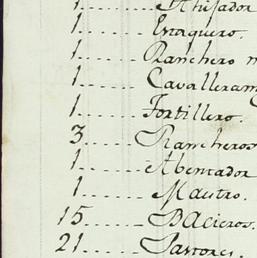 1...... Ahijador
1...... Escaquero.
1...... Ranchero m
1...... Cavalleram
1...... Tortillero.
3...... Rancheros
1...... Abentador
1...... Maestro.
15..... Bacieros.
21..... Pastores.